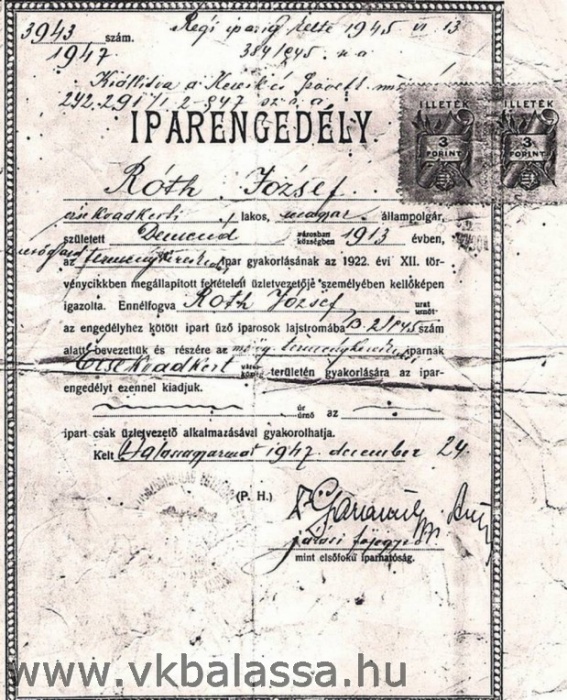 3943 szám.
1947
Régi iparig. kelte 1945 VI 13
384/945.
Kiállítva a Keresk. és
242.291/1
IPARENGEDÉLY.
ILLETÉK
3
FORINT
ILLETÉK
3
FORINT
Róth József
érsekvadkerti lakos, magyar állampolgár,
született Demend városban községben 1913 évben,
az terménykeresk. ipar gyakorlásának az 1922. évi XII. tör-
vénycikkben megállapított feltételeit üzletvezetője személyében kellőképen
igazolta. Ennélfogva Róth József urat
az engedélyhez kötött ipart űző iparosok lajstromába B. 2/945 szám
alatt bevezettük és részére az terménykeresk. iparnak
Érsekvadkert város község területén gyakorlására az ipar-
engedélyt ezennel kiadjuk.
úr úrnő az
ipart csak üzletvezető alkalmazásával gyakorolhatja.
Kelt Balassagyarmat 1947. december 24.
(P. H.)
járási főjegyző
mint elsőfokú iparhatóság.
www.vkbalassa.hu